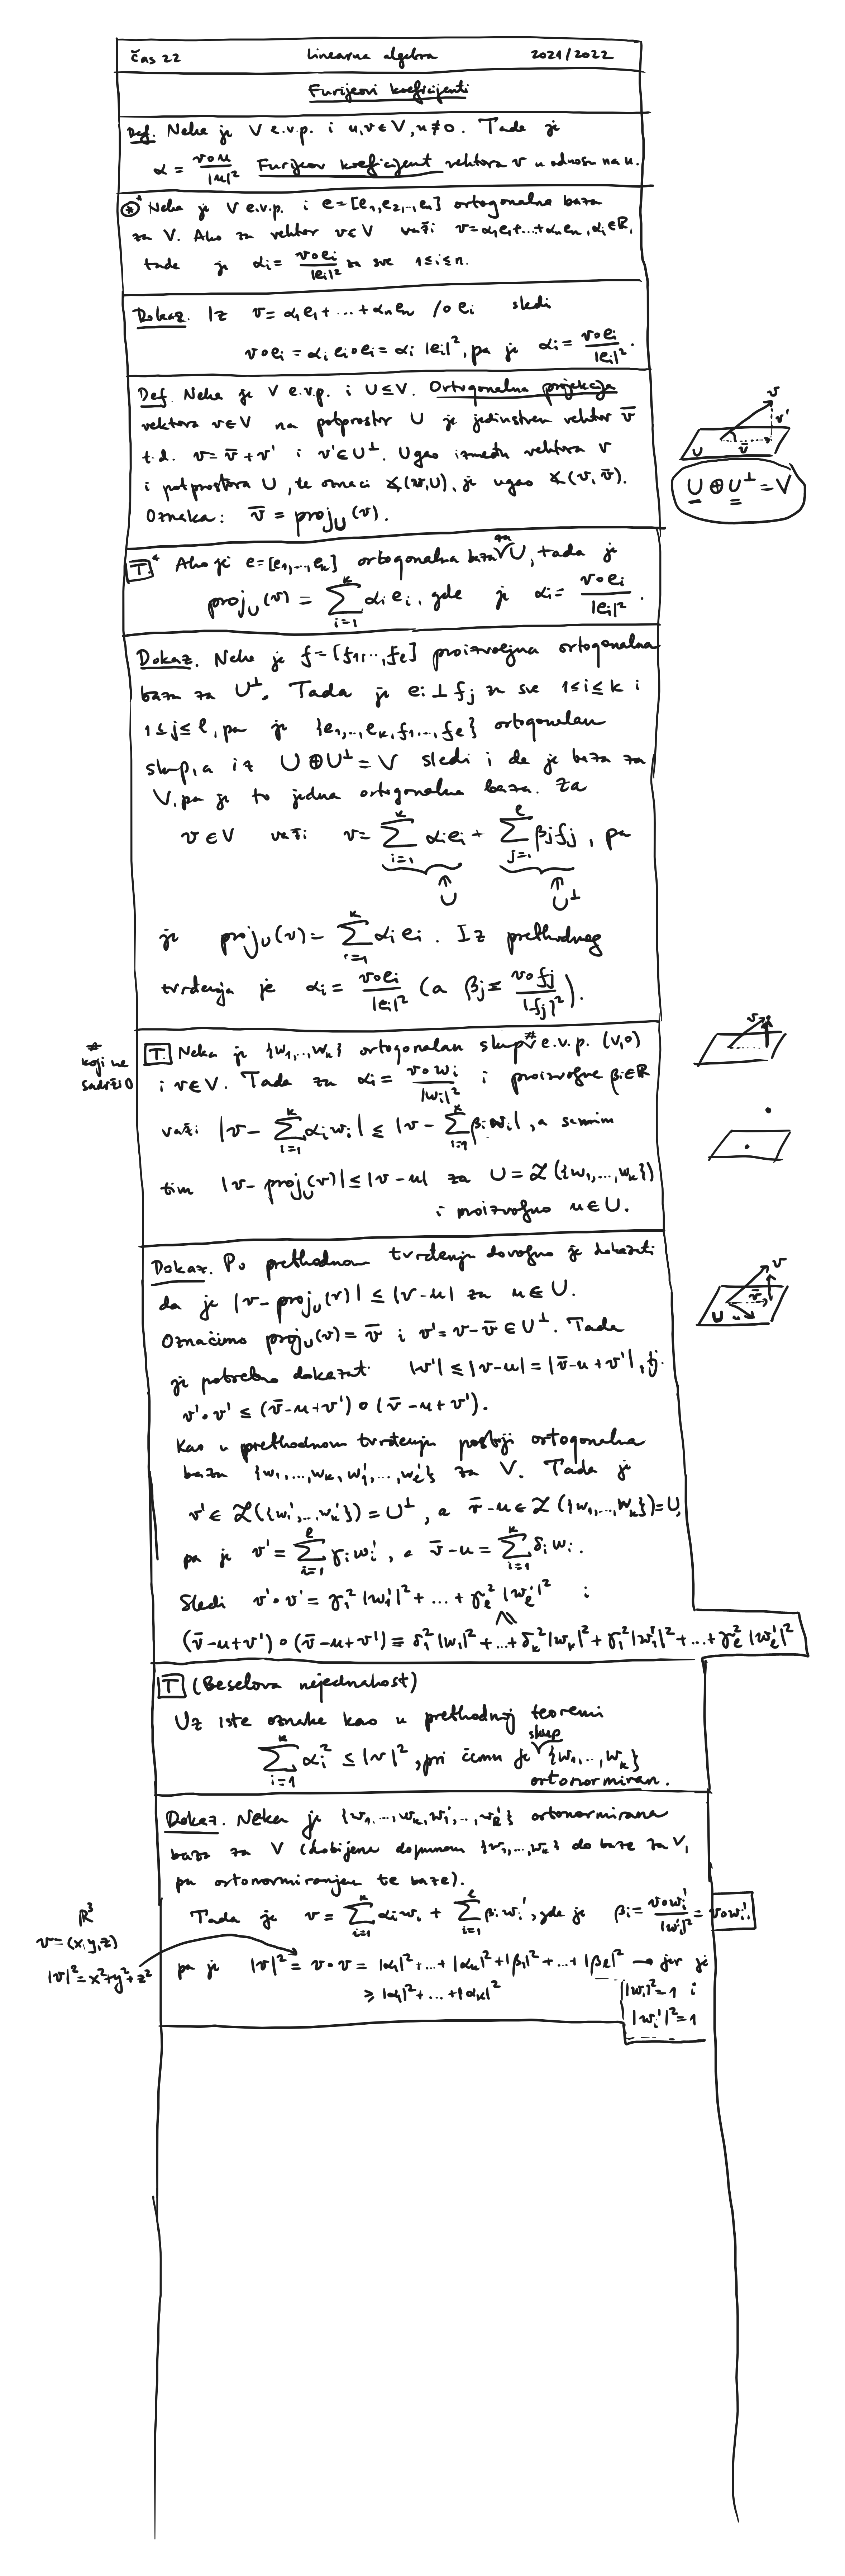 čas 22 Linearna algebra 2021/2022
Furijeovi koeficijenti
Def. Neka je V e.v.p. i u,v∈V, u≠0. Tada je
α = v∘u/|u|² Furijeov koeficijent vektora v u odnosu na u.
⊛* Neka je V e.v.p. i e=[e₁,e₂,..,eₙ] ortogonalna baza
za V. Ako za vektor v∈V važi v=α₁e₁+...+αₙeₙ, αᵢ∈ℝ,
tada je αᵢ = v∘eᵢ/|eᵢ|² za sve 1≤i≤n.
Dokaz. Iz v=α₁e₁+...+αₙeₙ /∘eᵢ sledi
v∘eᵢ = αᵢ eᵢ∘eᵢ = αᵢ |eᵢ|², pa je αᵢ = v∘eᵢ/|eᵢ|².
Def. Neka je V e.v.p. i U≤V. Ortogonalna projekcija
vektora v∈V na potprostor U je jedinstven vektor v̄
t.d. v = v̄+v' i v'∈U^⊥. Ugao između vektora v
i potprostora U, u oznaci ∡(v,U), je ugao ∡(v,v̄).
Oznaka: v̄ = proj_U(v).
v
v'
U v̄
U ⊕ U^⊥ = V
T.* Ako je e=[e₁,...,eₖ] ortogonalna baza za U, tada je
proj_U(v) = ∑_{i=1}^{k} αᵢeᵢ, gde je αᵢ = v∘eᵢ/|eᵢ|².
Dokaz. Neka je f=[f₁,..,fₗ] proizvoljna ortogonalna
baza za U^⊥. Tada je eᵢ⊥fⱼ za sve 1≤i≤k i
1≤j≤l, pa je {e₁,...,eₖ,f₁,...,fₗ} ortogonalan
skup, a iz U⊕U^⊥=V sledi i da je baza za
V, pa je to jedna ortogonalna baza. Za
v∈V važi v = ∑_{i=1}^{k} αᵢeᵢ + ∑_{j=1}^{l} βⱼfⱼ, pa
↑ ↑
U U^⊥
je proj_U(v) = ∑_{i=1}^{k} αᵢeᵢ. Iz prethodnog
tvrđenja je αᵢ = v∘eᵢ/|eᵢ|² (a βⱼ = v∘fⱼ/|fⱼ|²).
* koji ne
sadrži 0
T. Neka je {w₁,...,wₖ} ortogonalan skup* e.v.p. (V,∘)
i v∈V. Tada za αᵢ = v∘wᵢ/|wᵢ|² i proizvoljne βᵢ∈ℝ
važi |v - ∑_{i=1}^{k} αᵢwᵢ| ≤ |v - ∑_{i=1}^{k} βᵢwᵢ|, a samim
tim |v - proj_U(v)| ≤ |v-u| za U = ℒ({w₁,...,wₖ})
i proizvoljno u∈U.
v
Dokaz. Po prethodnom tvrđenju dovoljno je dokazati
da je |v - proj_U(v)| ≤ |v-u| za u∈U.
Označimo proj_U(v) = v̄ i v' = v-v̄ ∈ U^⊥. Tada
je potrebno dokazati |v'| ≤ |v-u| = |v̄-u+v'|, tj.
v'∘v' ≤ (v̄-u+v')∘(v̄-u+v').
v
v̄
U u
Kao u prethodnom tvrđenju postoji ortogonalna
baza {w₁,...,wₖ,w₁',...,wₗ'} za V. Tada je
v' ∈ ℒ({w₁',...,wₖ'}) = U^⊥, a v̄-u ∈ ℒ({w₁,...,wₖ}) = U,
pa je v' = ∑_{i=1}^{l} γᵢwᵢ', a v̄-u = ∑_{i=1}^{k} δᵢwᵢ.
Sledi v'∘v' = γ₁²|w₁'|² + ... + γₗ²|wₗ'|² i
(v̄-u+v')∘(v̄-u+v') = δ₁²|w₁|² + ... + δₖ²|wₖ|² + γ₁²|w₁'|² + ... + γₗ²|wₗ'|²
T (Beselova nejednakost)
Uz iste oznake kao u prethodnoj teoremi
∑_{i=1}^{k} αᵢ² ≤ |v|², pri čemu je skup {w₁,..,wₖ}
ortonormiran.
Dokaz. Neka je {w₁,...,wₖ,w₁',..,wₗ'} ortonormirana
baza za V (dobijena dopunom {w₁,...,wₖ} do baze za V,
pa ortonormiranjem te baze).
Tada je v = ∑_{i=1}^{k} αᵢwᵢ + ∑_{i=1}^{l} βᵢwᵢ', gde je βᵢ = v∘wᵢ'/|wᵢ'|² = v∘wᵢ'.
ℝ³
v=(x,y,z)
|v|²=x²+y²+z²
pa je |v|² = v∘v = |α₁|²+...+|αₖ|²+|β₁|²+...+|βₗ|² → jer je
≥ |α₁|²+...+|αₖ|²
|wᵢ|²=1 i
|wᵢ'|²=1